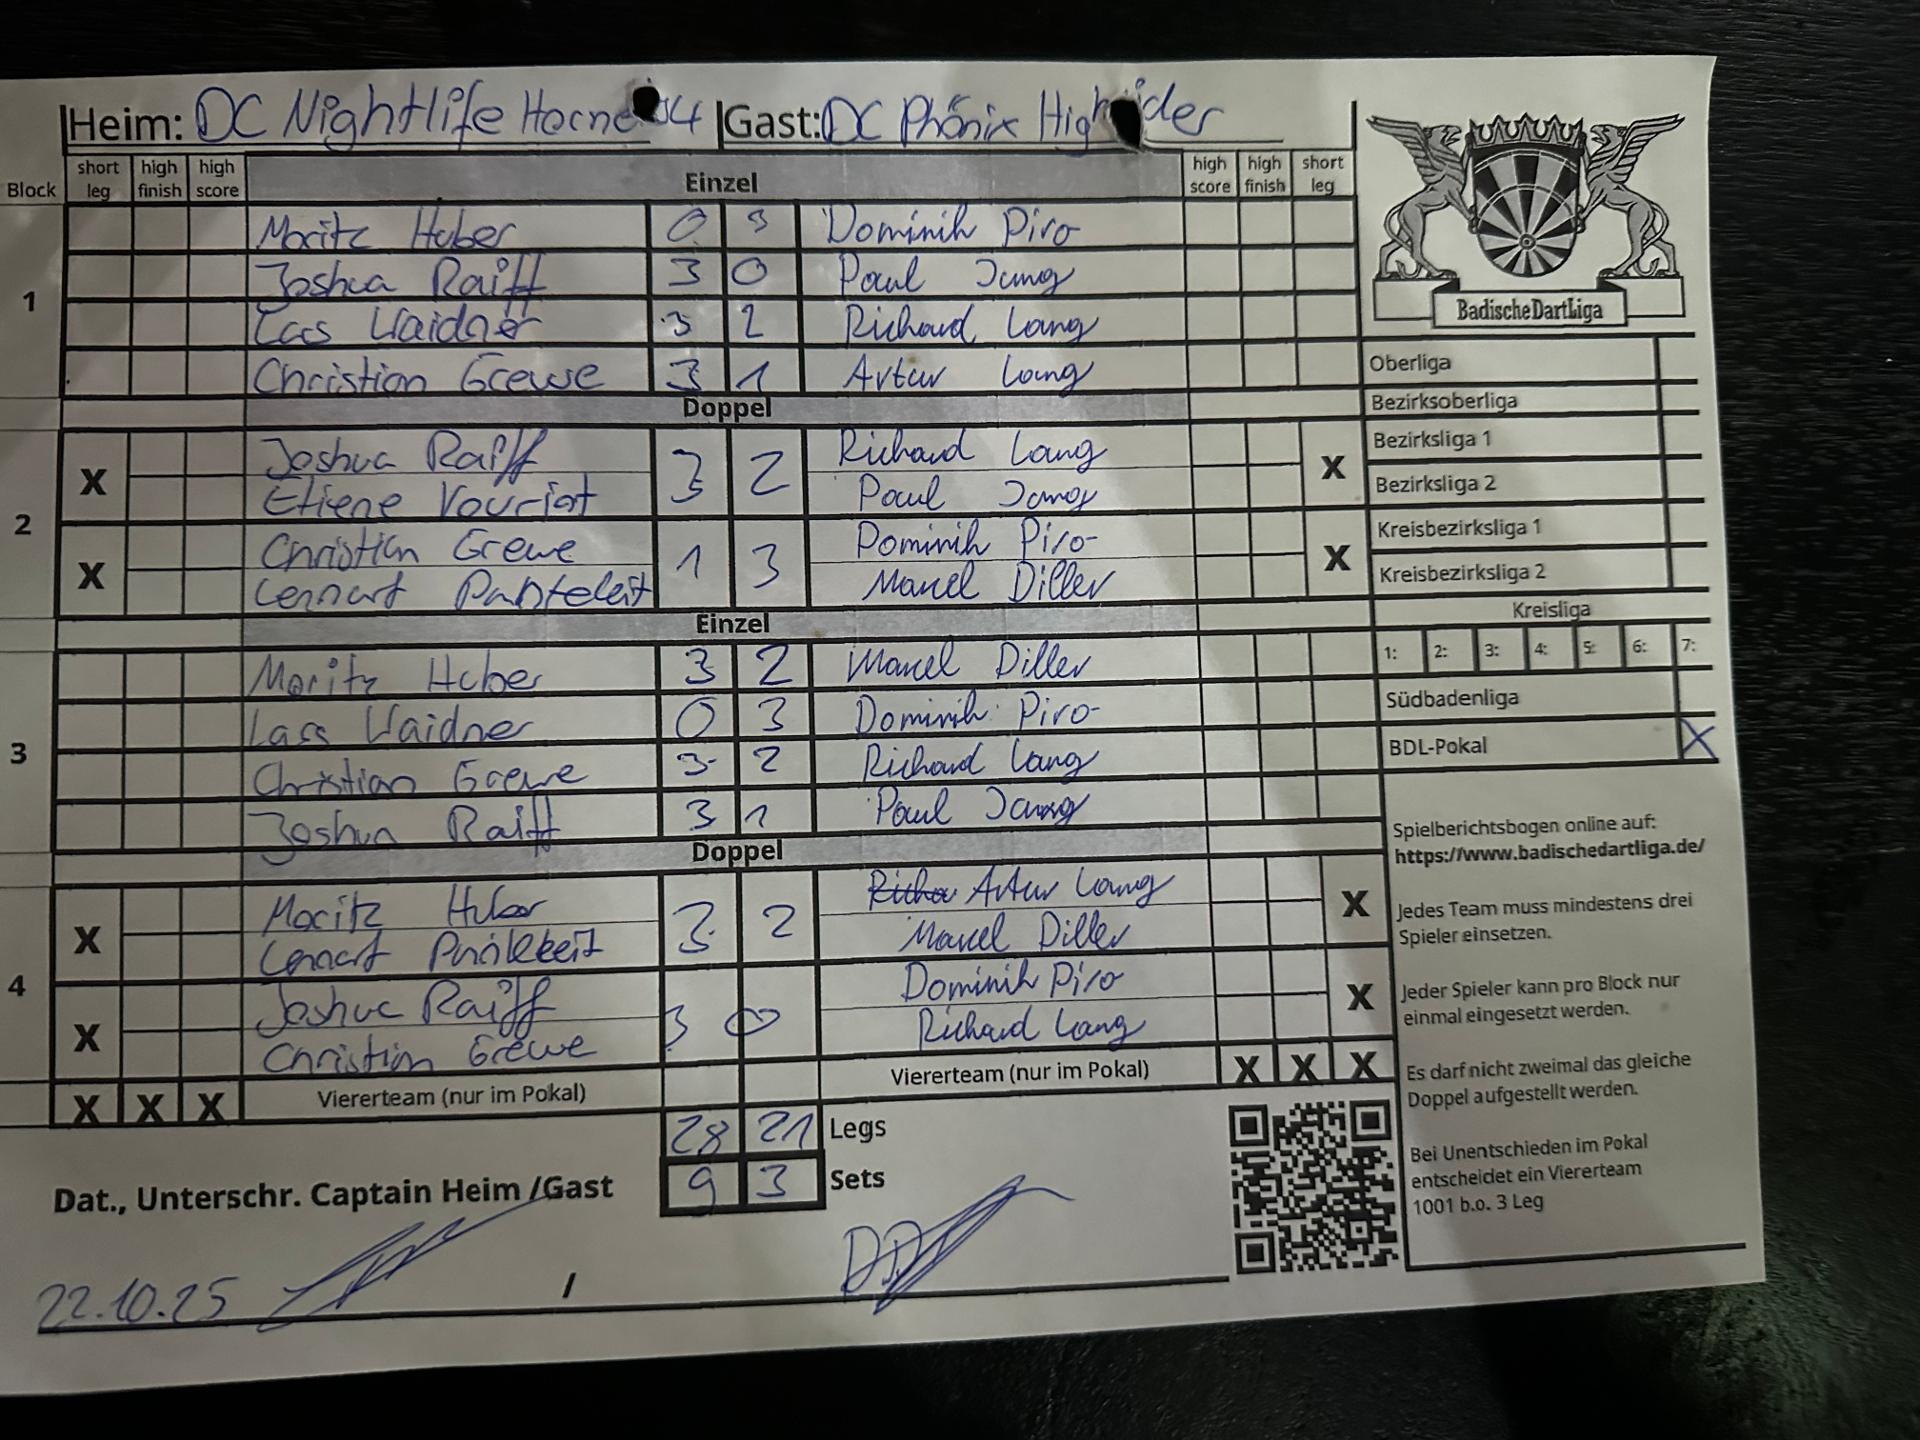 Heim: DC Nightlife Gast: DC Phönix
Block short leg high finish high score Einzel high score high finish short leg
1
Moritz Huber 0 3 Dominik Piro
Joshua Raiff 3 0 Paul Jung
Lars Waidner 3 2 Richard Lang
Christian Grewe 3 1 Artur Lang
Doppel
2
X Joshua Raiff 3 2 Richard Lang X
Etiene Vouriot Paul Jung
X Christian Grewe 1 3 Dominik Piro X
Lennart Marcel Diller
Einzel
3
Moritz Huber 3 2 Marcel Diller
Lars Waidner 0 3 Dominik Piro
Christian Grewe 3 2 Richard Lang
Joshua Raiff 3 1 Paul Jung
Doppel
4
X Moritz Huber 3 2 Artur Lang X
Lennart Marcel Diller
X Joshua Raiff 3 0 Dominik Piro X
Christian Grewe Richard Lang
X X X Viererteam (nur im Pokal) Viererteam (nur im Pokal) X X X
28 21 Legs
9 3 Sets
Dat., Unterschr. Captain Heim /Gast
22.10.25 /
BadischeDartLiga
Oberliga
Bezirksoberliga
Bezirksliga 1
Bezirksliga 2
Kreisbezirksliga 1
Kreisbezirksliga 2
Kreisliga
1: 2: 3: 4: 5: 6: 7:
Südbadenliga
BDL-Pokal X
Spielberichtsbogen online auf:
https://www.badischedartliga.de/
Jedes Team muss mindestens drei
Spieler einsetzen.
Jeder Spieler kann pro Block nur
einmal eingesetzt werden.
Es darf nicht zweimal das gleiche
Doppel aufgestellt werden.
Bei Unentschieden im Pokal
entscheidet ein Viererteam
1001 b.o. 3 Leg